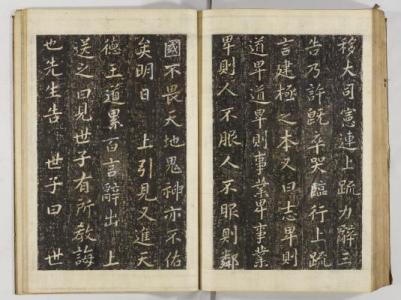 移大司憲連上疏力辭三
告乃許旣卒哭臨行上疏
言建極之本又曰志卑則
道卑道卑則事業卑事業
卑則人不服人不服則鄰
國不畏天地鬼神亦不佑
矣明日 上引見又進天
德王道累百言辭出上
送之曰見世子有所教誨
也先生告 世子曰 世